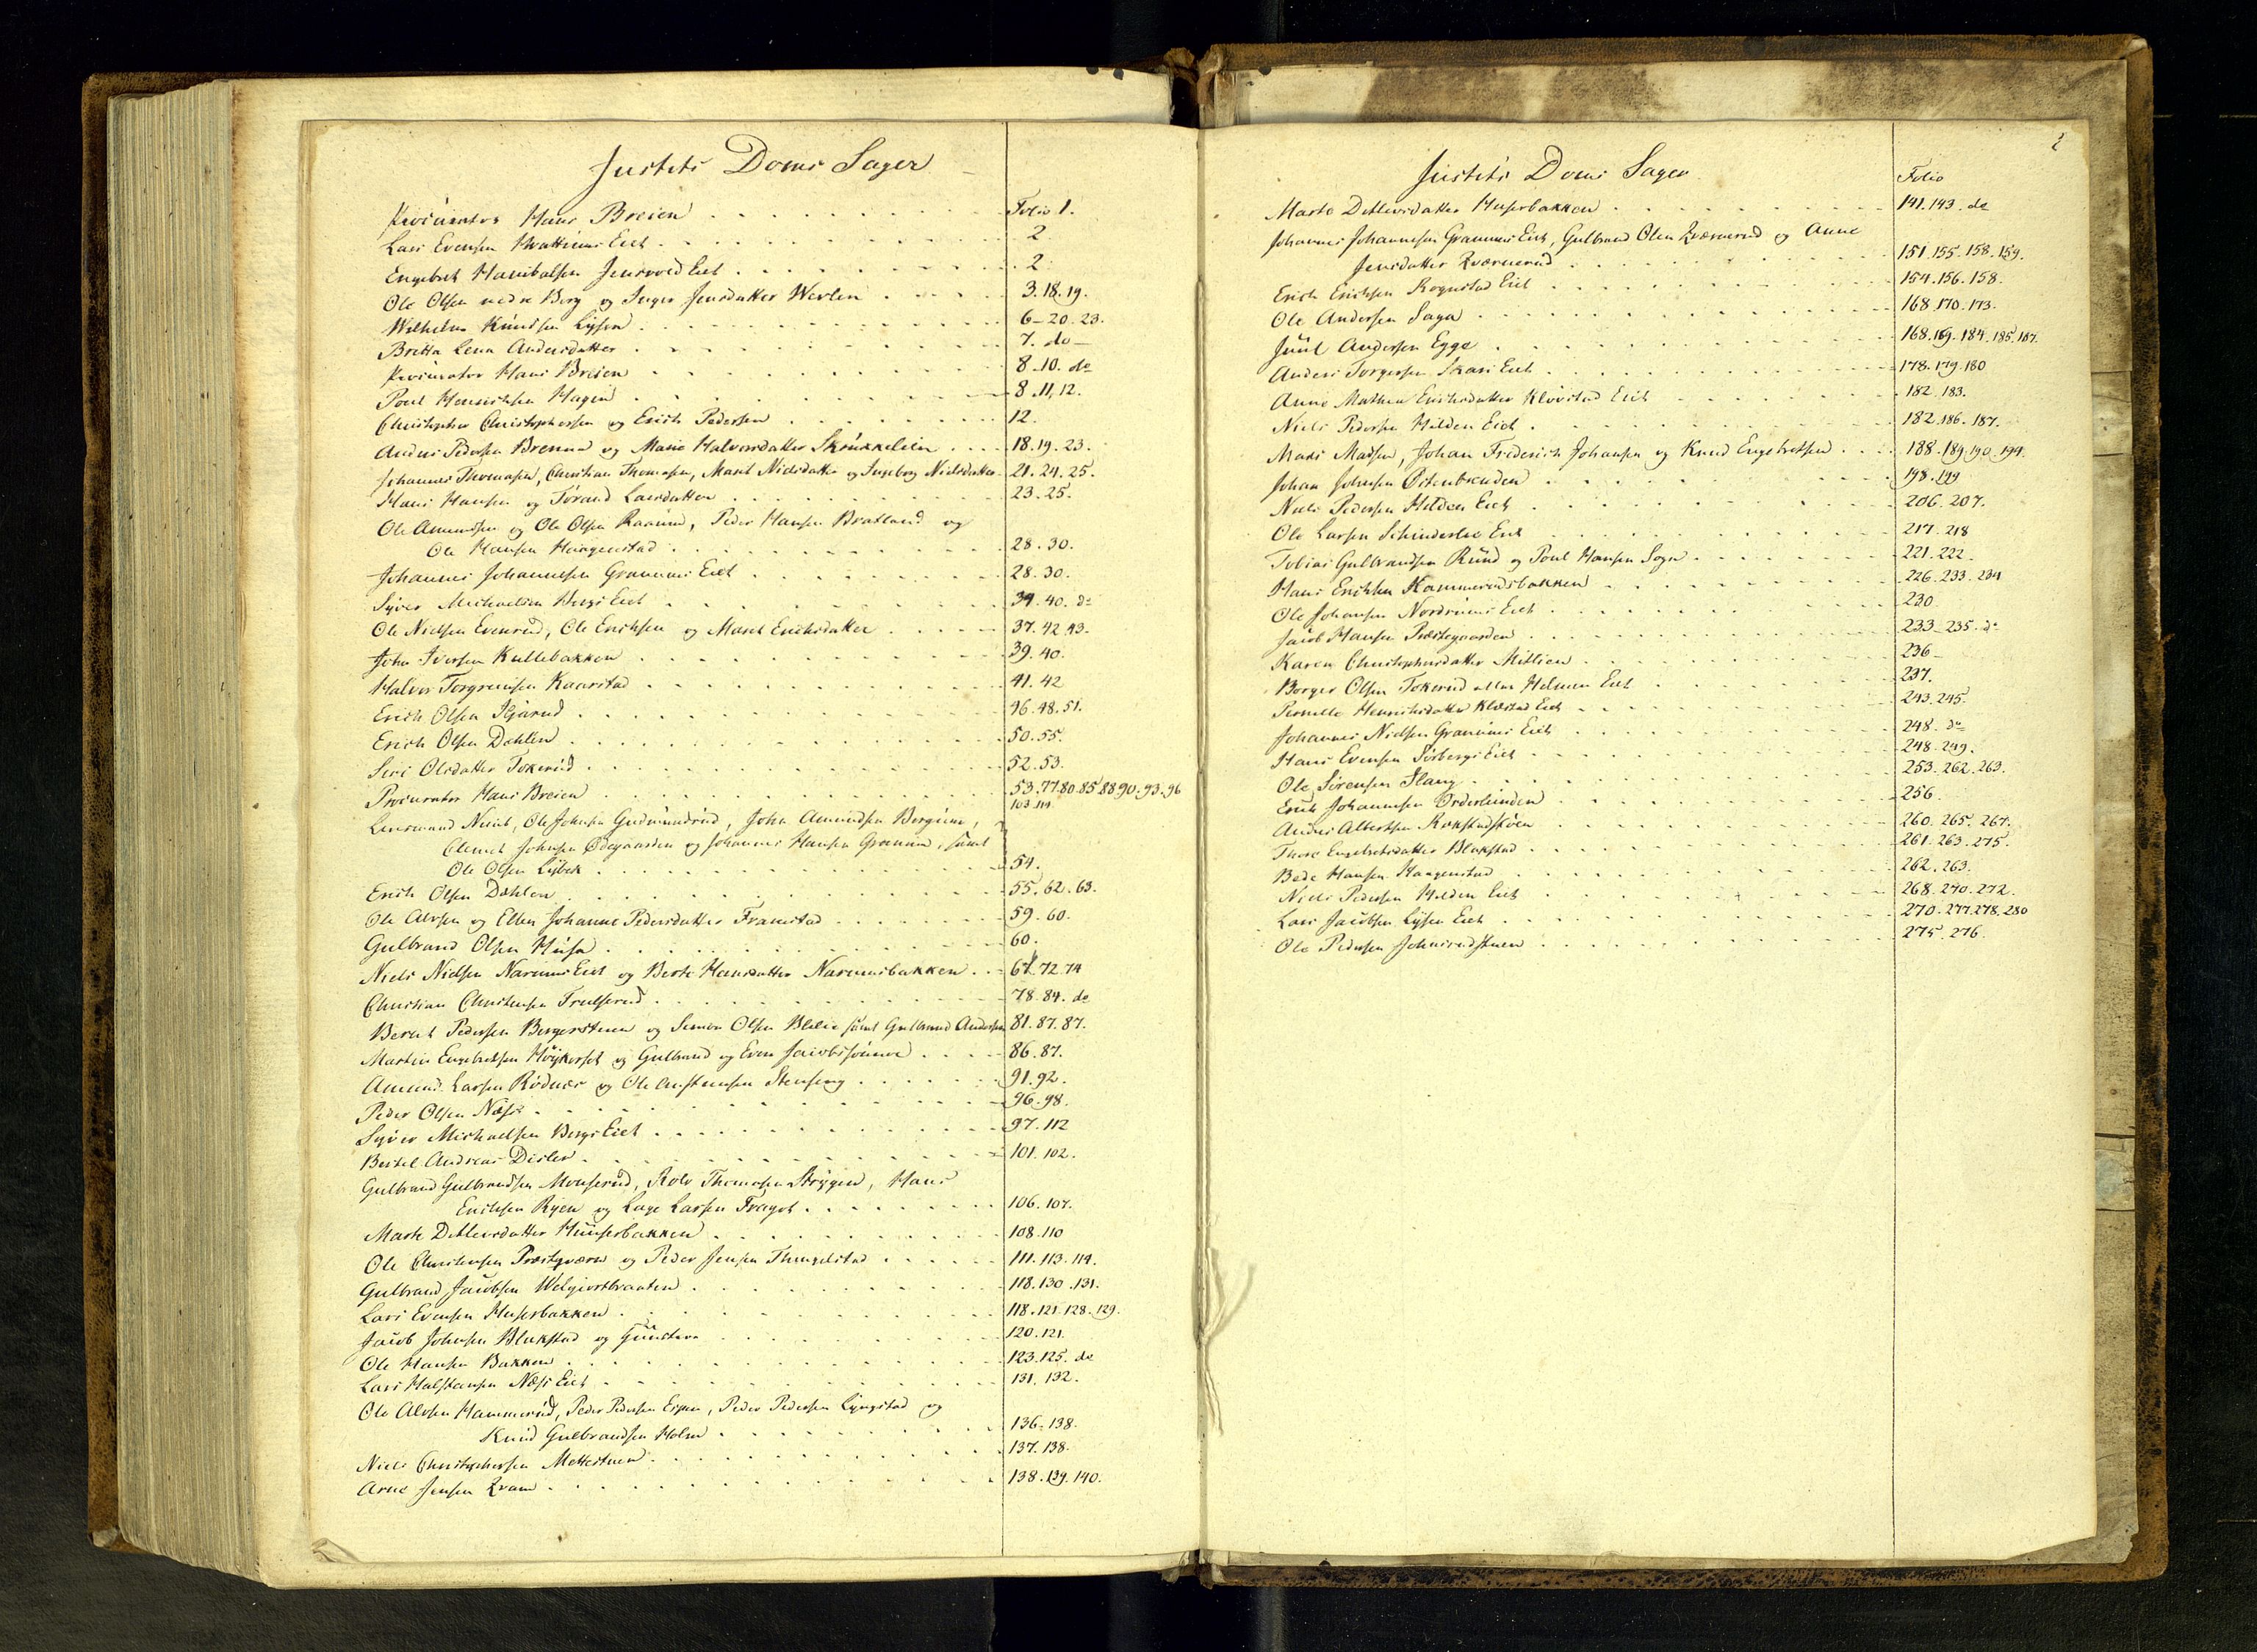 Justits Doms Sager
Procurator Hans Breien Folio 1.
Lars Evensen Hvattums Eiet 2
Engebret Hanibalsen Jensvold Eiet 2
Ole Olsen nedre Berg og Inger Jensdatter Werlen 3.18.19.
Wilhelm Knudsen Lysen 6-20.23.
Britta Lena Andersdatter 7. do
Procurator Hans Breien 8.10. do
Poul Henrichsen Hagen 8.11.12.
Christopher Christophersen og Erich Pedersen 12.
Anders Pedersen Brenna og Marie Halvorsdatter Skrukkelien 18.19.23.
Johannes Thomasen, Christian Thomasen, Marit Nielsdatter og Ingeborg Nielsdatter 21.24.25.
Hans Hansen og Torand Larsdatter 23.25.
Ole Amundsen og Ole Olsen Raaum, Peder Hansen Bratland og
Ole Hansen Haagenstad 28.30.
Johannes Johannesen Granums Eiet 28.30.
Syver Michaelsen Bergs Eiet 34.40. do
Ole Nielsen Evenrud, Ole Erichsen og Marit Erichsdatter 37.42.43.
John Iversen Kullebakken 39.40.
Halvor Torgrimsen Kaarstad 41.42
Erich Olsen 46.48.51.
Erich Olsen Dahlen 50.55.
Siri Olsdatter Tokerud 52.53.
Procurator Hans Breien 53.77.80.85.88.90.93.96
103.114
Lensmand, Ole Johnsen Gudmundrud, John Amundsen Bergum,
Clemet Johnsen Ødegaarden og Johannes Hansen Granum, samt
Ole Olsen Lysbek 54.
Erich Olsen Dahlen 55.62.63.
Ole Alvsen og Ellen Johanne Pedersdatter Framstad 59.60.
Gulbrand Olsen Husa 60.
Niels Nielsen Narums Eiet og Berte Hansdatter Narumsbakken 67.72.74
Christian Christensen Trulserud 78.84. do
Berent Pedersen Bergerstuen og Simon Olsen Blilie samt Gulbrand Andersen 81.87.87.
Martin Engebretsen Høykorset og Gulbrand og Even Jacobssønner 86.87.
Amund Larsen Rødnæs og Ole Anstensen Stenseng 91.92.
Peder Olsen Næss 96.98.
Syver Michaelsen Bergs Eiet 97.112
Bertel Andreas Disler 101.102.
Gulbrand Gulbrandsen Monserud, Rolv Thomasen Strygen, Hans
Erichsen Ryen og Lage Larsen Fragot 106.107.
Marte Detlevsdatter Huuserbakken 108.110
Ole Christensen Præstqværn og Peder Jensen Thingelstad 111.113.114.
Gulbrand Jacobsen Welgjortbraaten 118.130.131.
Lars Evensen Huserbakken 118.121.128.129.
Jacob Johnsen Blakstad og Hustrue 120.121.
Ole Hansen Bakken 123.125. do
Lars Halstensen Næss Eiet 131.132.
Ole Alvsen Hammerud, Peder Pedersen, Peder Pedersen Lyngstad og
Knud Gulbrandsen Holm 136.138.
Niels Christophersen Mettestuen 137.138.
Arne Jensen Qvam 138.139.140.
Justits Doms Sager Folio
Marte Detlevsdatter Huserbakken 141.143. do
Johannes Johannesen Granums Eiet, Gulbrand Olsen Qværnerud og Anne
Jensdatter Qværnerud 151.155.158.159.
Erich Erichsen Rognstad Eiet 154.156.158.
Ole Andersen Saga 168.170.173.
Juul Andersen Egge 168.169.184.185.187.
Anders Torgersen Skari Eiet 178.179.180
Anne Mathea Erichsdatter Kløvstad Eiet 182.183.
Niels Pedersen Hilden Eiet 182.186.187.
Mads Madsen, Johan Friderich Johansen og Knud Engebretsen 188.189.190.194.
Johan Johnsen Østenbrenden 198.199
Niels Pedersen Hilden Eiet 206.207.
Ole Larsen Schinderlee Eiet 217.218
Tobias Gulbrandsen Rund og Poul Hansen Sogn 221.222.
Hans Erichsen Kammerudsbakken 226.233.234
Ole Johansen Nordrums Eiet 230
Jacob Hansen Præstegaarden 233_235. do
Karen Christophersdatter Mitlien 236_
Borger Olsen Tokerud eller Hilmen Eiet 237.
Pernelle Henrichsdatter Klæstad Eiet 243.245.
Johannes Nielsen Granums Eiet 248. do
Hans Evensen Sørbergs Eiet 248.249.
Ole Sørensen Slang 253.262.263.
Erich Johannesen Orderlunden 256.
Anders Albertsen Rokstadstøen 260.265.267.
Thore Engebretsdatter Blakstad 261.263.275.
Bede Hansen Haagenstad 262.263.
Niels Pedersen Hilden Eiet 268.270.272.
Lars Jacobsen Lysen Eiet 270.277.278.280
Ole Pedersen Johnsrudstuen 275.276.